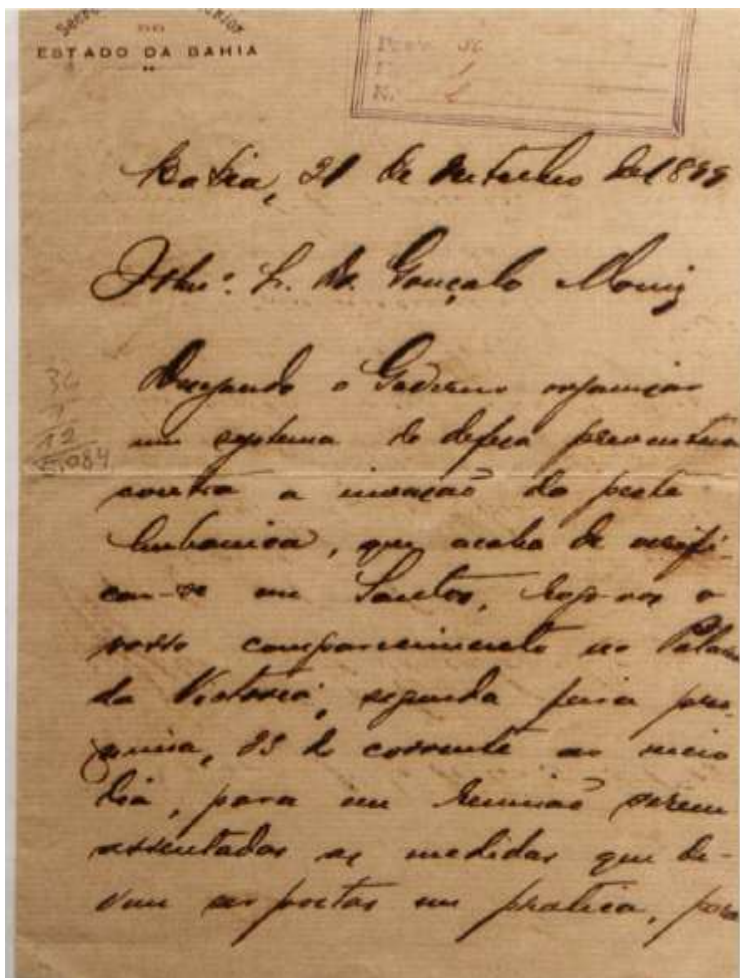 DO
ESTADO DA BAHIA
Nº 1
Bahia, 21 de Outubro de 1899
Dr. Gonçalo Moniz
Desejando o Governo organizar
um systema de defesa preventiva
contra a invasão da peste
bubonica, que acaba de verifi-
car-se em Santos, rogo-vos o
vosso comparecimento no Palacio
da Victoria, segunda feira pro-
xima, 23 do corrente ao meio
dia, para em reunião serem
assentadas as medidas que de-
vem ser postas em pratica, para